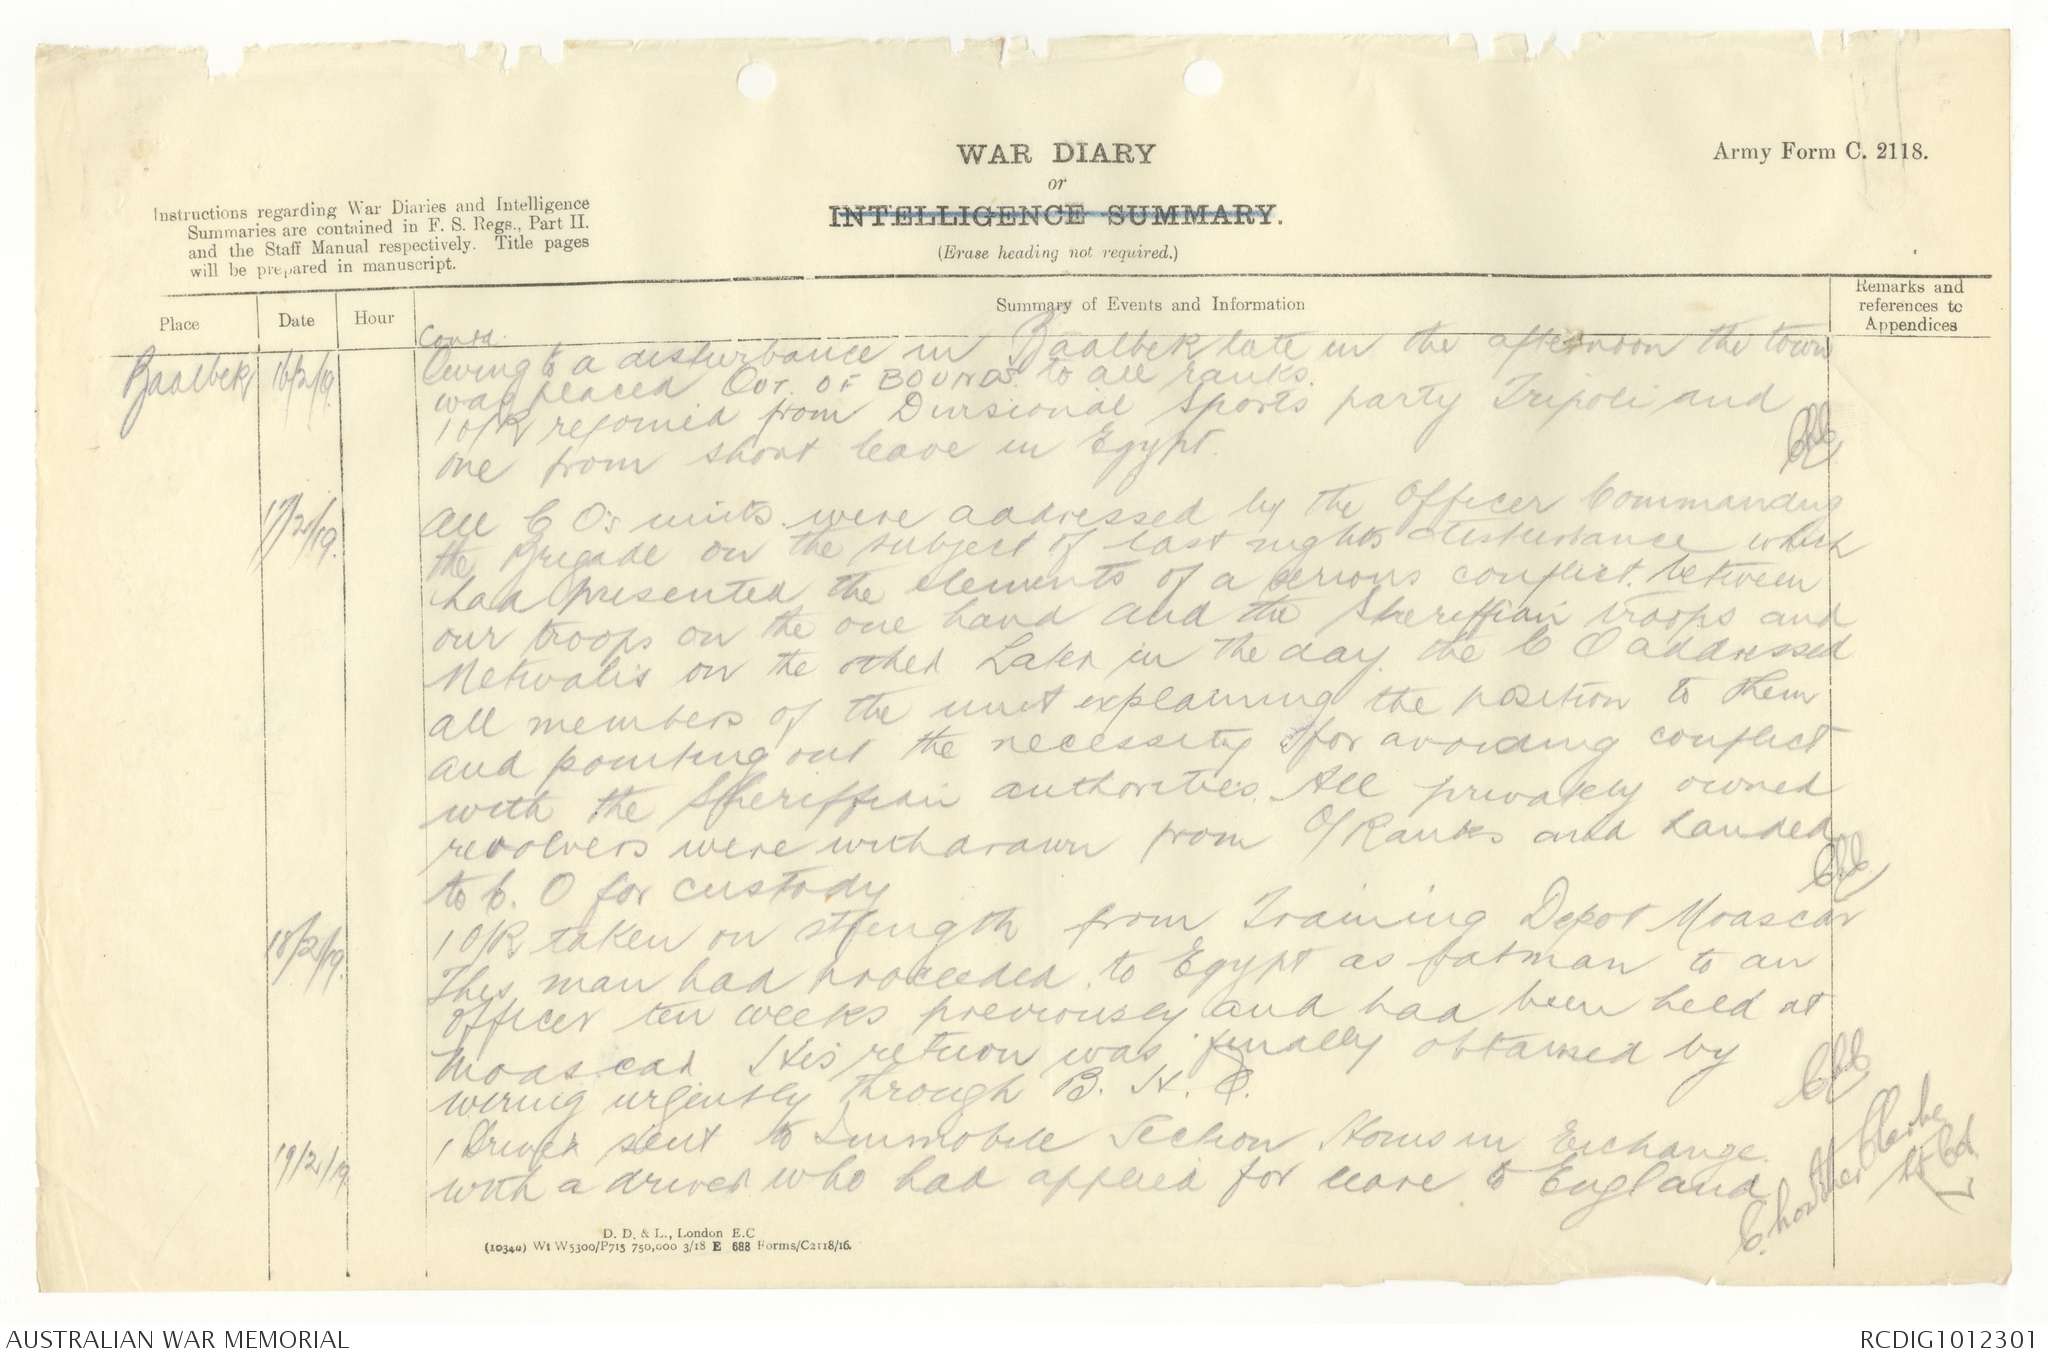 WAR DIARY
or
INTELLIGENCE SUMMARY.
(Erase heading not required.)
Army Form C. 2118.
Instructions regarding War Diaries and Intelligence
Summaries are contained in F. S. Regs., Part II.
and the Staff Manual respectively. Title pages
will be prepared in manuscript.
Place
Date
Hour
Summary of Events and Information
Remarks and
references to
Appendices
Contd.
Baalbek 16/2/19. Owing to a disturbance in Baalbek late in the afternoon the town
was placed OUT OF BOUNDS to all ranks.
1 O/R rejoined from Divisional Sports party Tripoli and
one from short leave in Egypt.
17/2/19. All C O's units were addressed by the Officer Commanding
the Brigade on the subject of last nights disturbance which
had presented the elements of a serious conflict between
our troops on the one hand and the Sheriffian troops and
Metwalis on the other Later in the day the C O addressed
all members of the unit explaining the position to them
and pointing out the necessity for avoiding conflict
with the Sheriffian authorities. All privately owned
revolvers were withdrawn from O/Ranks and handed
to C. O for custody
18/2/19. 1 O/R taken on strength from Training Depot Moascar
This man had proceeded to Egypt as batman to an
officer ten weeks previously and had been held at
Moascar His return was finally obtained by
wiring urgently through B. H. Q.
19/2/19 1 Driver sent to Immobile Section Homs in Exchange
with a driver who had applied for leave to England
Clarke
D. D. & L., London E.C
(10340) Wt W5300/P715 750,000 3/18 E 688 Forms/C2118/16.
AUSTRALIAN WAR MEMORIAL
RCDIG1012301